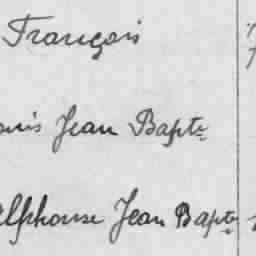 François
ouis Jean Bapte
Alphonse Jean Bapte